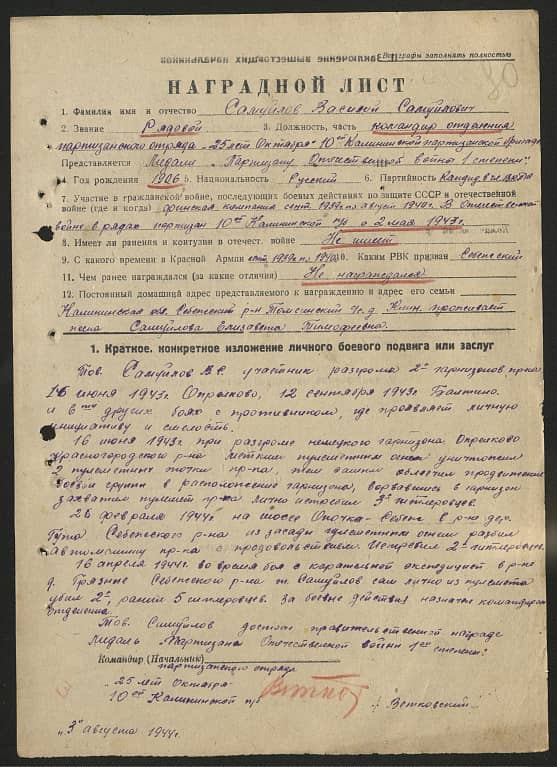 Все графы заполнять полностью
НАГРАДНОЙ ЛИСТ
1. Фамилия имя и отчество Самуйлов Василий Самуйлович
2. Звание Рядовой 3. Должность, часть командир отделения
партизанского отряда "25 лет Октября" 10ой Калининской партизанской бригады
Представляется Медали "Партизану Отечественной войны 1 степени".
4. Год рождения 1906 5. Национальность Русский 6. Партийность Кандид. в чл. ВКП(б)
7. Участие в гражданской войне, последующих боевых действиях по защите СССР и отечественной
войне (где и когда) финская компания сент. 1939г. по 1940г. В Отечественной
войне в рядах партизан 10ой Калининской с 2 мая 1943г.
8. Имеет ли ранения и контузии в отечест. войне Не имеет
9. С какого времени в Красной Армии 10. Каким РВК призван Себежский
11. Чем ранее награждался (за какие отличия) Не награждался
12. Постоянный домашний адрес представляемого к награждению и адрес его семьи
Калининская обл. Себежский р-н Томсинский с/с д. проживает
жена Самуйлова Елизавета Тимофеевна.
1. Краткое, конкретное изложение личного боевого подвига или заслуг
Тов. Самуйлов В.С. участник разгрома 2х гарнизонов пр-ка
16 июня 1943г. Опросково, 12 сентября 1943г. Балтино.
и 6ти других боях с противником, где проявляет личную
инициативу и смелость.
16 июня 1943г. при разгроме немецкого гарнизона Опросково
Красногородского р-на метким пулеметным огнем уничтожил
2 пулеметных точки пр-ка, тем самым облегчил продвижение
боевой группы в расположение гарнизона, ворвавшись в гарнизон
захватил пулемет пр-ка лично истребил 3х гитлеровцев.
26 февраля 1944г. на шоссе Опочка-Себеж в р-не дер.
Себежского р-на из засады пулеметным огнем разбил
автомашину пр-ка с продовольствием. Истребил 2х гитлеровцев.
16 апреля 1944г. во время боя с карательной экспедицией в р-не
д. Грязные Себежского р-на т. Самуйлов сам лично из пулемета
убил 2х, ранил 5 гитлеровцев. За боевые действия назначен командиром
отделения.
Тов. Самуйлов достоин правительственной награде
Медаль "Партизана Отечественной войны 1ой степени".
Командир (Начальник) партизанского отряда
"25 лет Октября"
10ой Калининской п/б / Ветковский /
"3" августа 1944г.